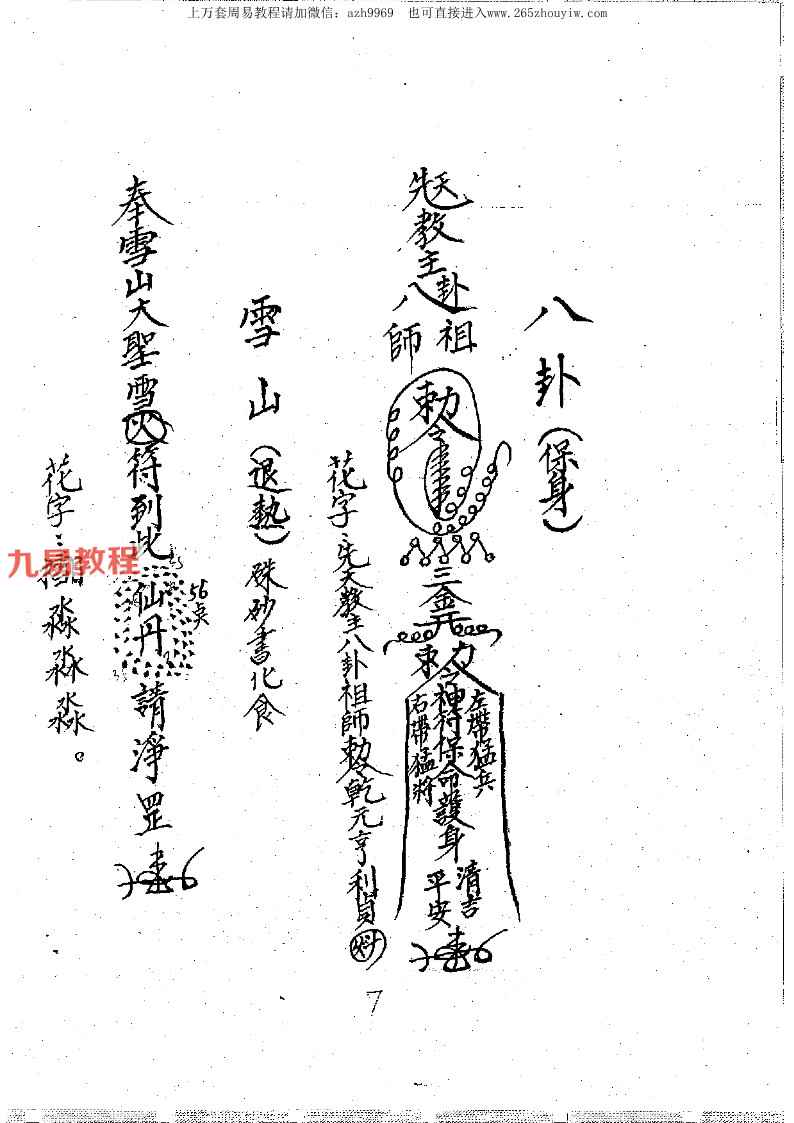 上万套周易教程请加微信：azh9969　也可直接进入www.265zhouyiw.com
八卦（保身）
先天教主八卦祖師
勅令
三金
勅令神符保命護身
左帶猛兵
右帶猛將
清吉
平安
花字：先天教主八卦祖師勅令乾元亨利貞
雪山（退熱）硃砂書化食
奉雪山大聖雪火符到此仙丹請淨罡
56点
花字：
淼淼淼。
九易教程
7